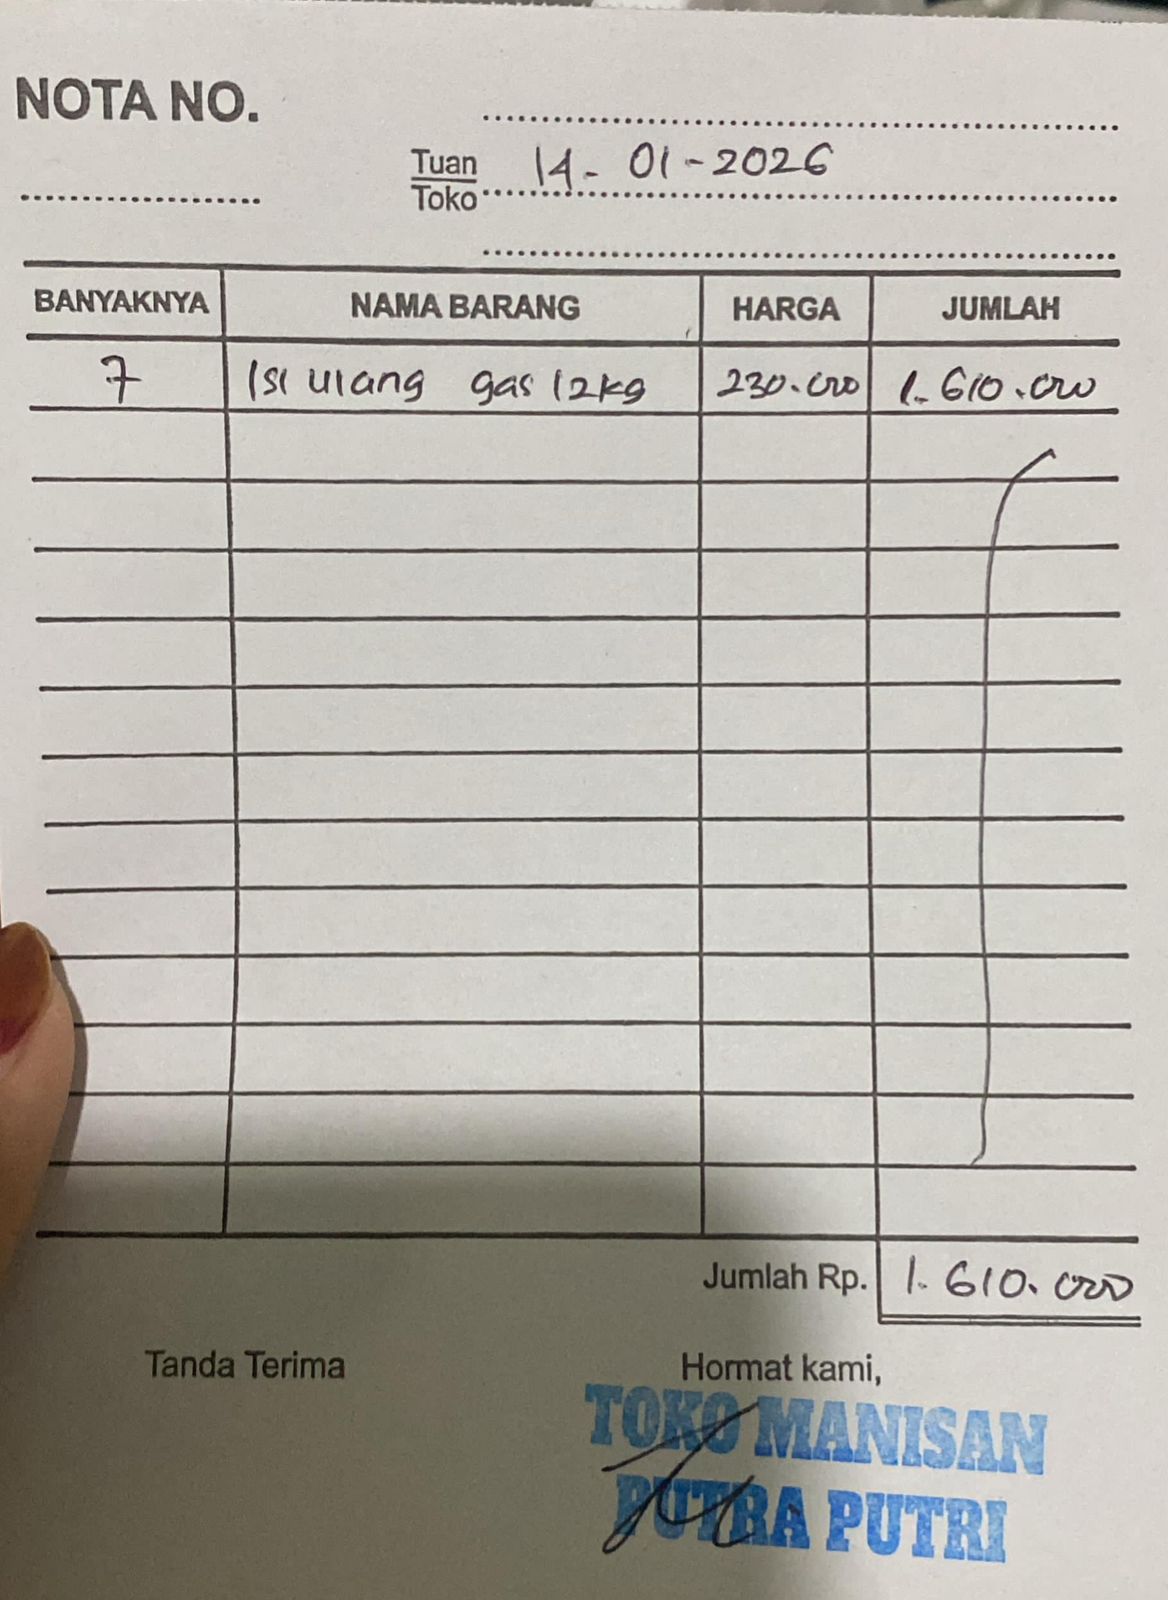 NOTA NO.
Tuan
Toko
14-01-2026
BANYAKNYA NAMA BARANG HARGA JUMLAH
7 Isi ulang gas 12kg 230.000 1.610.000
Jumlah Rp. 1.610.000
Tanda Terima Hormat kami,
TOKO MANISAN
PUTRA PUTRI